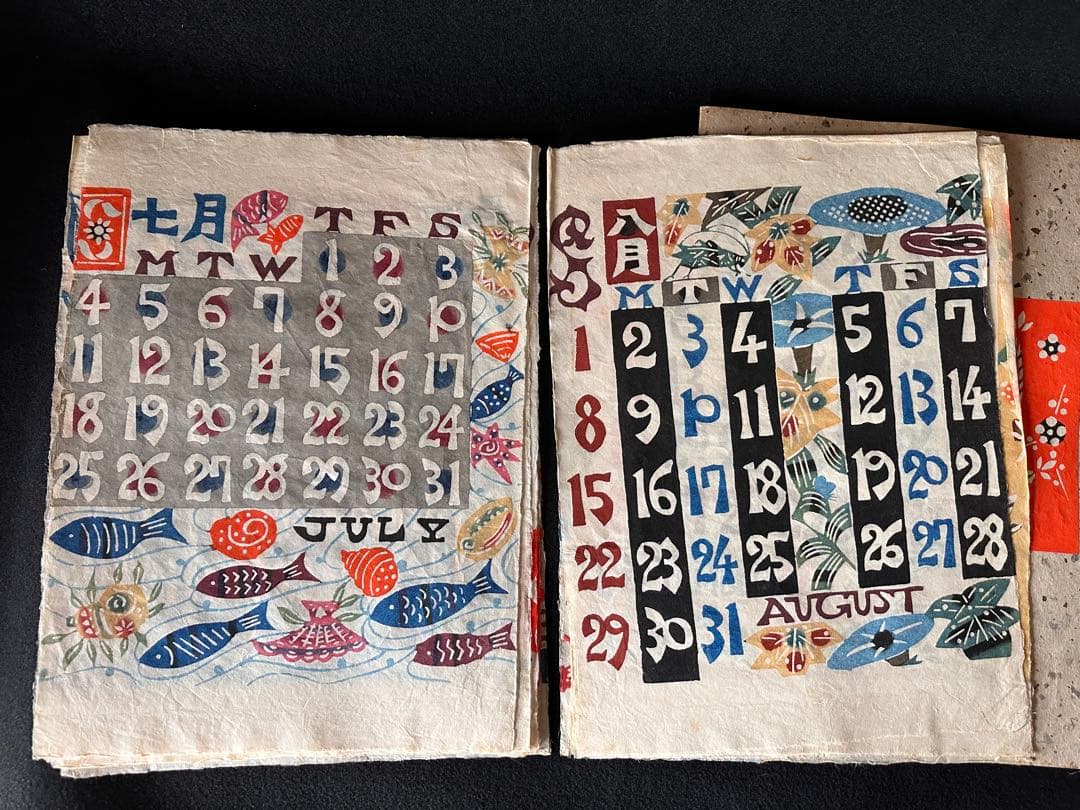 七月 T F S
M T W 1 2 3
4 5 6 7 8 9 10
11 12 13 14 15 16 17
18 19 20 21 22 23 24
25 26 27 28 29 30 31
JULY
八月
S M T W T F S
1 2 3 4 5 6 7
8 9 10 11 12 13 14
15 16 17 18 19 20 21
22 23 24 25 26 27 28
AUGUST
29 30 31